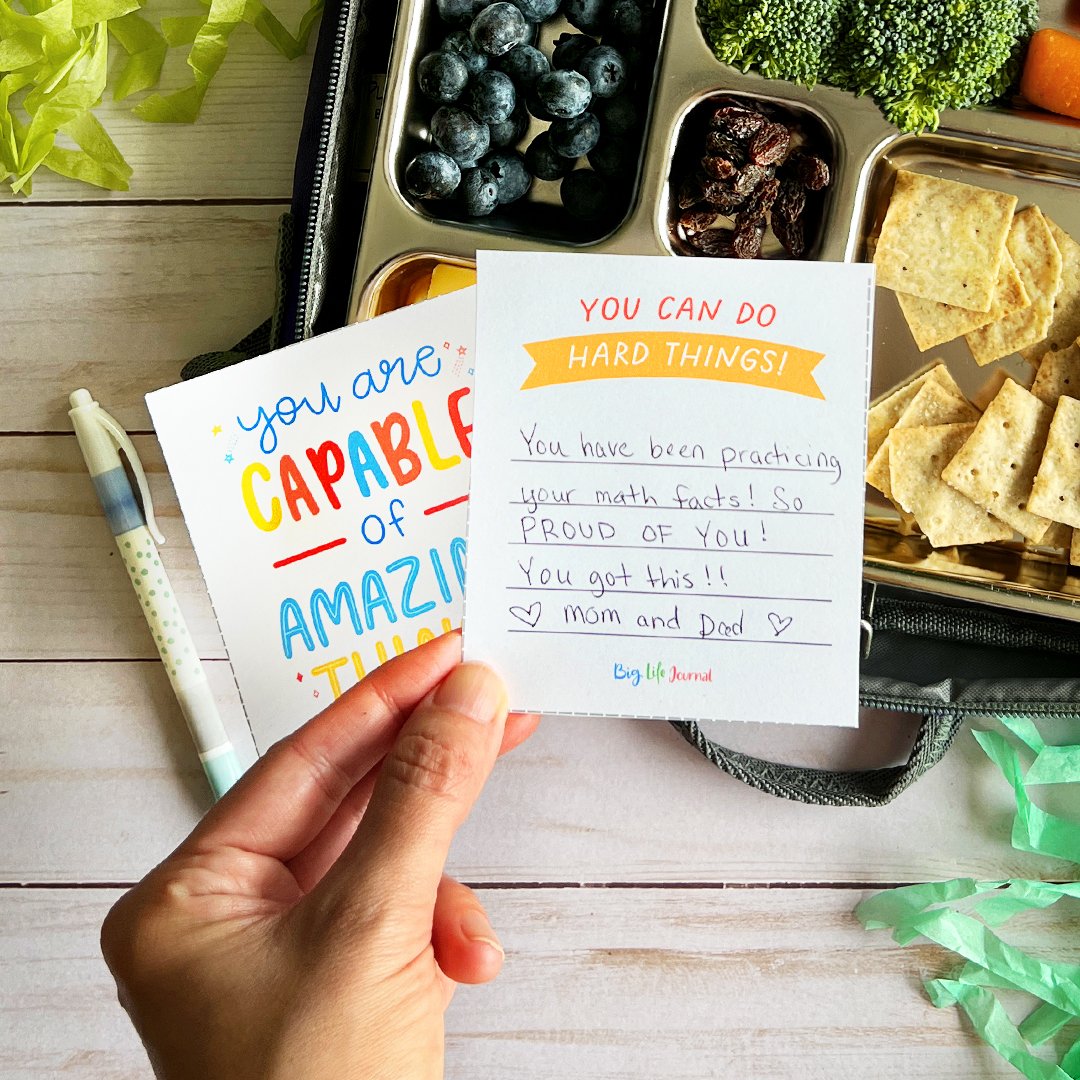 you are
CAPABLE
of
YOU CAN DO
HARD THINGS!
You have been practicing
your math facts! So
PROUD OF YOU!
You got this!!
♡ mom and Dad ♡
Big Life Journal